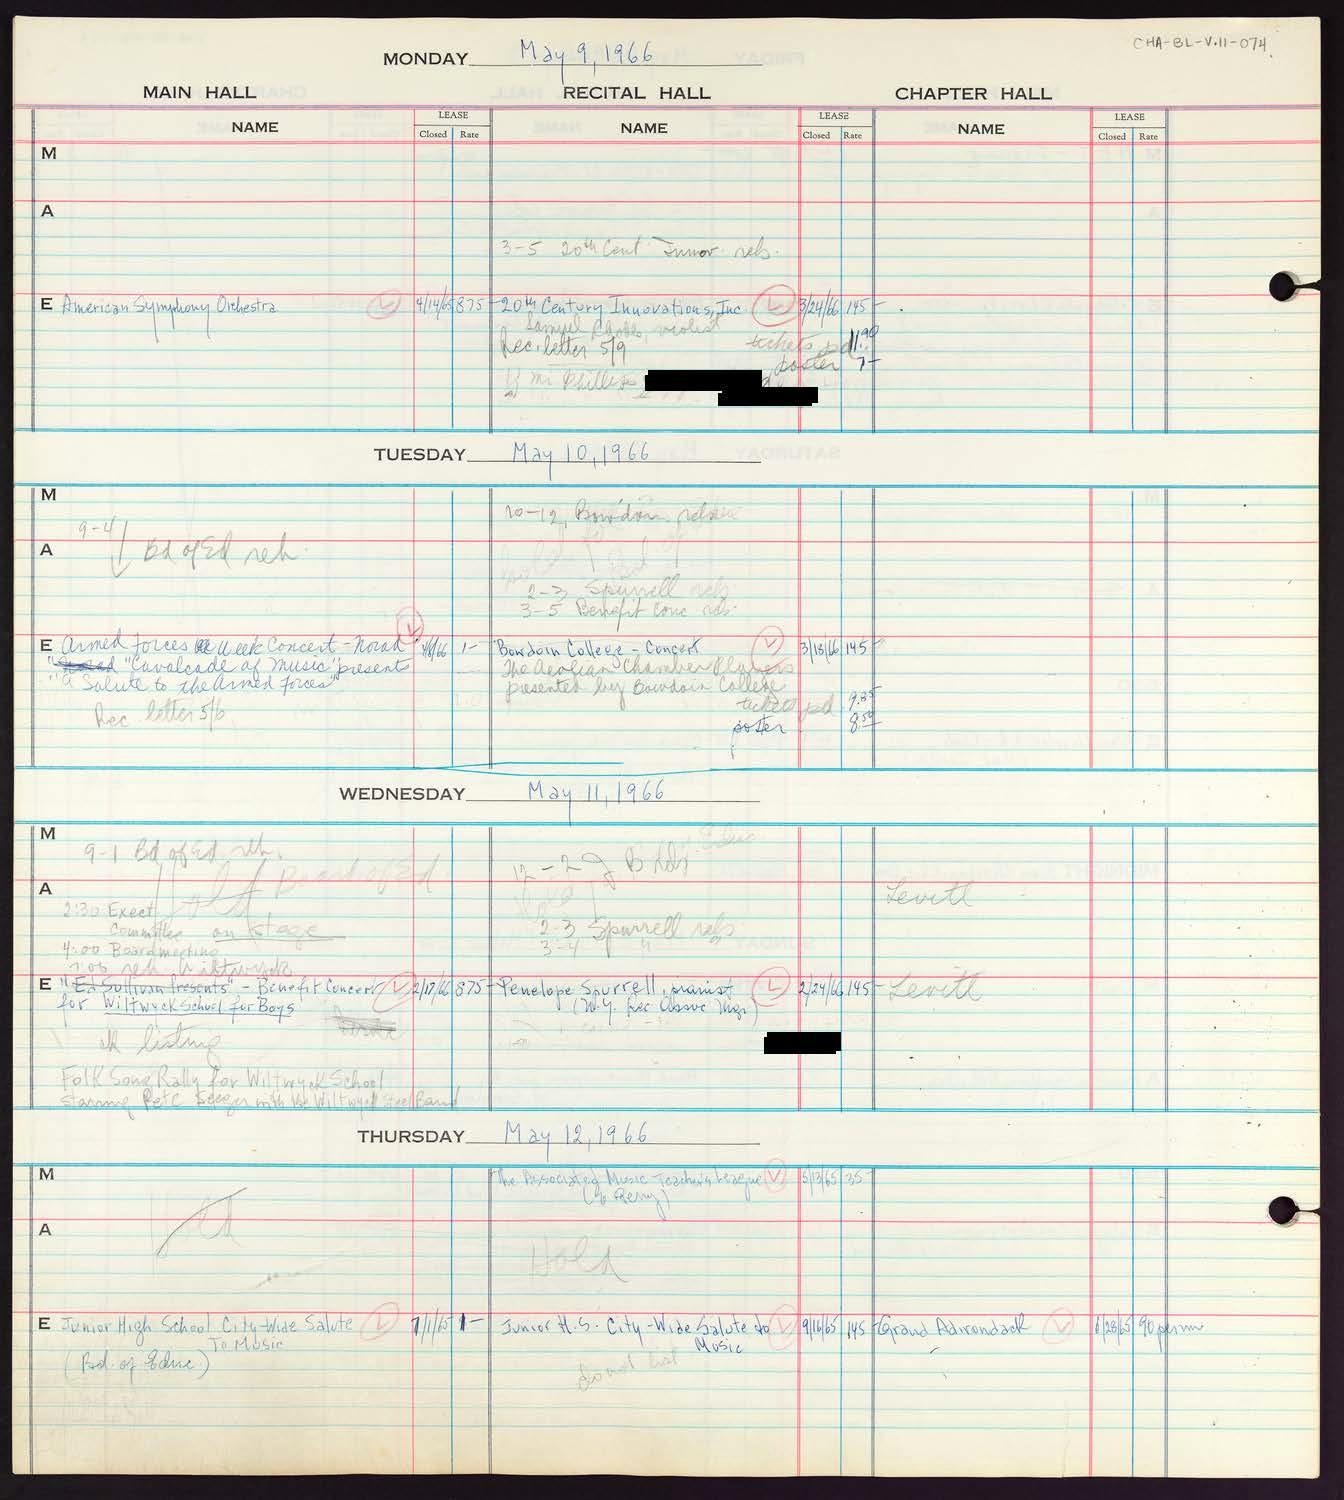 CHA-BL-V.11-074
MONDAY May 9, 1966
MAIN HALL RECITAL HALL CHAPTER HALL
NAME LEASE Closed Rate NAME LEASE Closed Rate NAME LEASE Closed Rate
M
A
3-5 20th Cent Innov. rehs.
E American Symphony Orchestra 4/14/65 875- 20th Century Innovations, Inc 3/24/66 145-
Samuel violist
Rec. letter 5/9 tickets pd 11.90
poster 7-
Mr Phillips
TUESDAY May 10, 1966
M
10-12, Bowdoin
9-4
A Bd of Ed reh.
2-3 Spurrell reh
3-5 Benefit Conc reh.
E Armed Forces Week Concert - Norad 1- Bowdoin College - Concert 3/18/66 145-
"Cavalcade of Music" presents The Aeolian Chamber Players
"A Salute to the Armed Forces" presented by Bowdoin College
Rec. letter 5/6 tickets pd 9.35
poster 8.50
WEDNESDAY May 11, 1966
M
9-1 Bd of Ed reh.
Hold Board of Ed 12-2
A Levitt
2:30 Exect
Committee on stage 2-3 Spurrell reh
4:00 Board meeting 3-4 "
7:00 reh Wiltwyck
E "Ed Sullivan Presents" - Benefit Concert 2/17/66 875- Penelope Spurrell, pianist 2/24/66 145- Levitt
for Wiltwyck School for Boys
ok listing
Folk Song Rally for Wiltwyck School
starring Pete Seeger with the Wiltwyck Steel Band
THURSDAY May 12, 1966
M The Associated Music Teachers League 5/13/65 35-
Hold
A
Hold
E Junior High School City-Wide Salute 7/1/65 1- Junior H.S. City-Wide Salute to 9/16/65 145- Grand Adirondack 6/28/65 90 perm
To Music Music
(Bd. of Educ) do not list